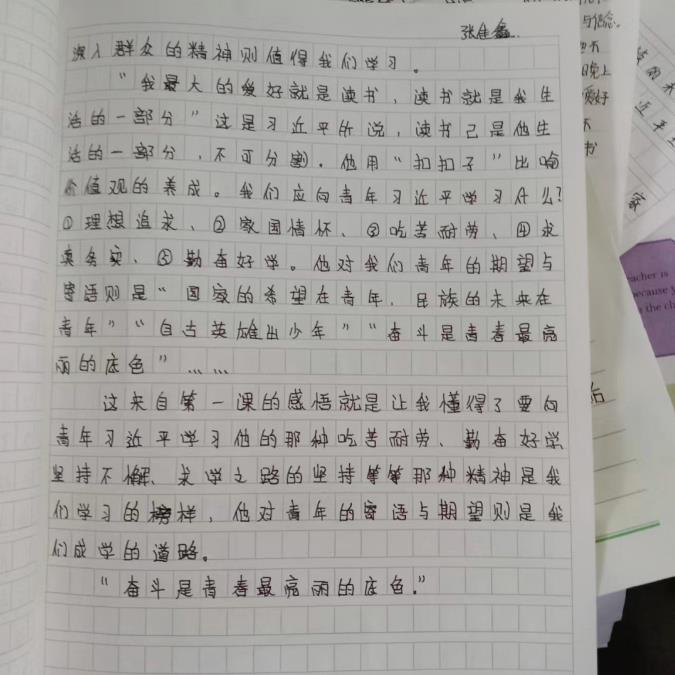 张佳鑫
深入群众的精神则值得我们学习。
“我最大的爱好就是读书，读书就是我生
活的一部分”这是习近平所说，读书已是他生
活的一部分，不可分割．他用“扣扣子”比喻
价值观的养成。我们应向青年习近平学习什么?
①理想追求、②家国情怀、③吃苦耐劳、④求
真务实、⑤勤奋好学。他对我们青年的期望与
寄语则是“国家的希望在青年，民族的未来在
青年”“自古英雄出少年”“奋斗是青春最亮
丽的底色”……
这来自第一课的感悟就是让我懂得了要向
青年习近平学习他的那种吃苦耐劳、勤奋好学
坚持不懈、求学之路的坚持等等那种精神是我
们学习的榜样，他对青年的寄语与期望则是我
们成学的道路。
“奋斗是青春最亮丽的底色．”
与信念。
晚上
爱好
书
近平
家
eacher is
because y
the cla